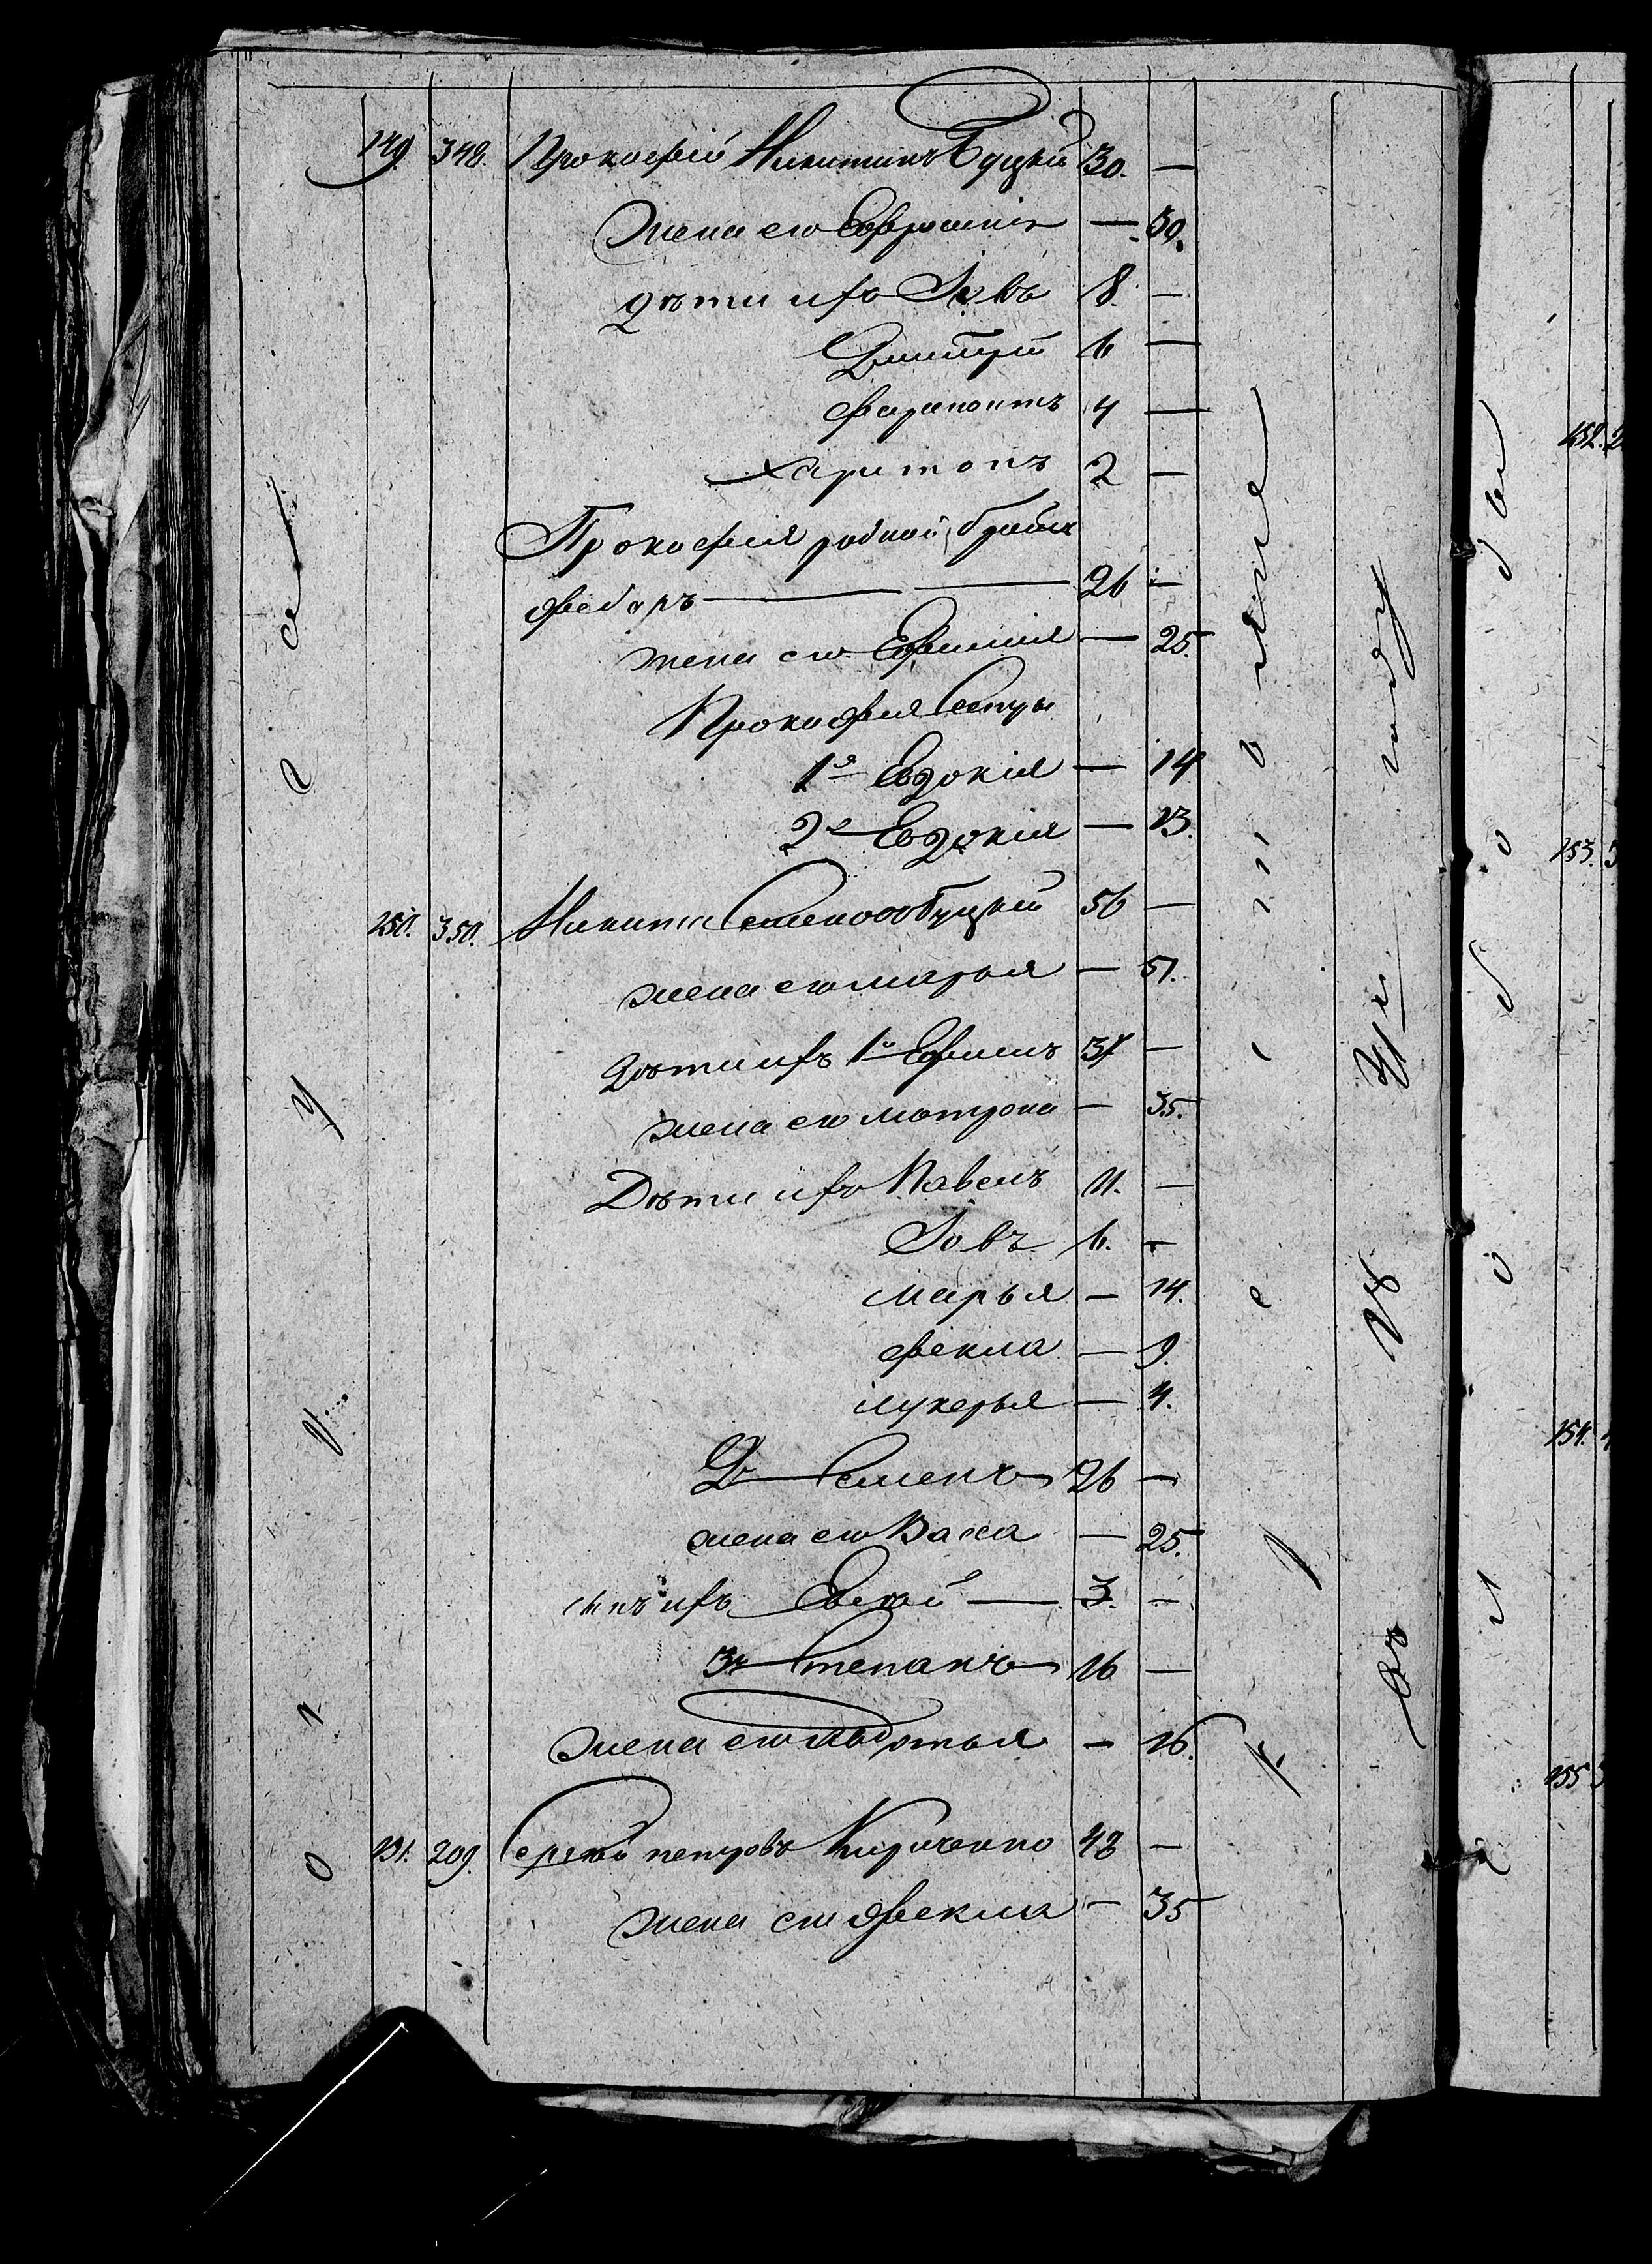 149. 348. Прокофій Никитинъ Буцкій 30. —
Жена его Евфросинія — 30.
дѣти ихъ Іовъ 8. —
Дмитрій 6 —
Ферапонтъ 4 —
Харитонъ 2 —
Прокофія родной братъ
Федоръ 26 —
жена его Ефимія — 25.
Прокофія Сестры
1я Евдокія — 14
2я Евдокія — 13.
150. 350. Никита Семеновъ Буцкій 56 —
жена его марья — 51.
Дѣти ихъ 1й Ефимъ 37 —
жена его матрона — 35.
Дѣти ихъ Павелъ 11. —
Іовъ 6. —
марья — 14.
фекла — 9.
лукерья — 4.
2й Семенъ 26 —
жена его Васса — 25.
сынъ ихъ 3. —
3й Степанъ 16 —
жена его Авдотья — 16.
151. 209. Сергей петровъ Кириченко 48 —
жена его Фекла — 35
въ
году
152. 2
153. 3
154.
155 3